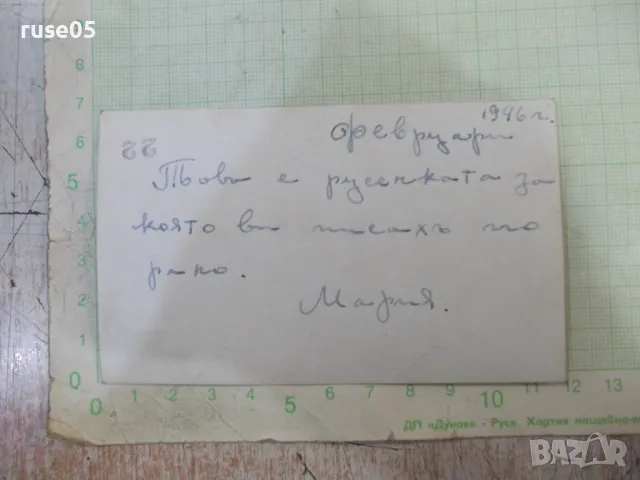 ruse05
1946 г.
февруари
22
Това е русенката за
която ви писахъ по
рано.
Мария.
8
7
6
5
4
3
2
1
0
0 1 2 3 4 5 6 7 8 9 10 11 12 13
ДП «Дунав» - Русе Хартия мащабно-
BAZAR